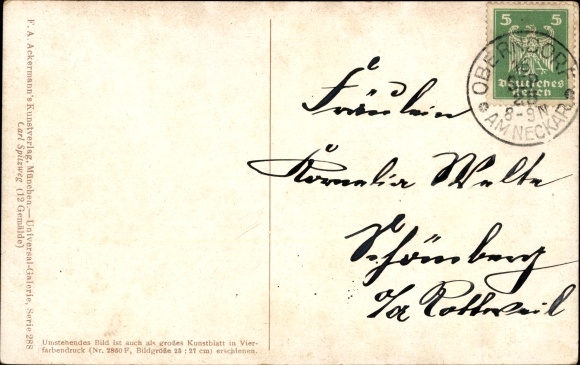 F. A. Ackermann's Kunstverlag, München.—Universal-Galerie, Serie 288
Carl Spitzweg (12 Gemälde)
Umstehendes Bild ist auch als großes Kunstblatt in Vier-
farbendruck (Nr. 2980 F, Bildgröße 25 : 27 cm) erschienen.
5 5
Deutsches
Reich
OBERNDORF
8-9 N
AM NECKAR
Fräulein
Kornelia Welte
Schömberg
o/a Rottweil